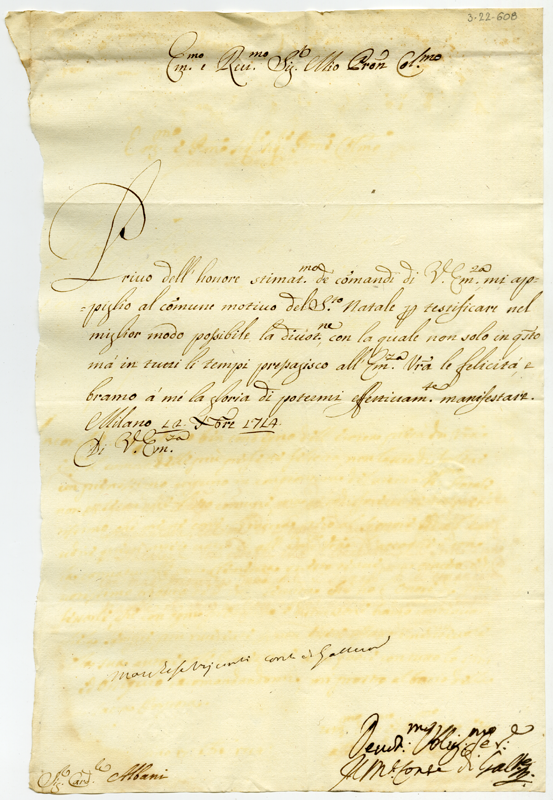 3-22-608
Em.mo e Rev.mo Sig.r Mio Pron Col.mo
Privo dell' honore stimat.mo de comandi di V. Em.za mi ap-
-piglio al comune motivo del S.to Natale p testificare nel
miglior modo possibile la divot.ne con la quale non solo in q.sto
mà in tutti li tempi prepagisco all' Em.za Vra le felicità, e
bramo à mè la gloria di potermi effettivam.te manifestare.
Milano 12 Xbre 1714.
Di V. Em.za
Marchese Visconti conte di Gallera
Devot.mo Oblig.mo Ser.e
Il M.e Conte di
Sig.r Card.le Albani